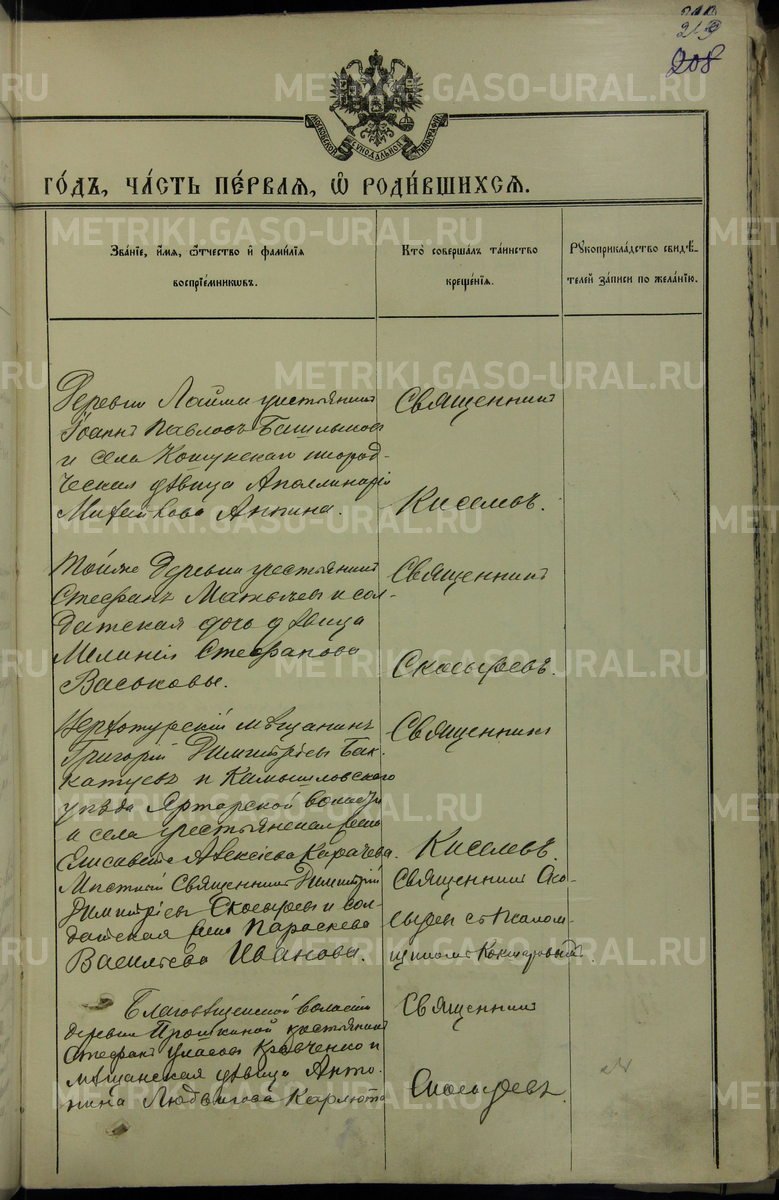 213
208
МОСКОВСКОЙ СѴНОДАЛЬНОЙ ТИПОГРАФІИ
ГО́ДЪ, ЧА́СТЬ ПЕ́РВАѦ, Ѡ҆ РОДИ́ВШИХСѦ.
Зва́нїе, и҆́мѧ, ѻ҆́тчество и҆ фами́лїѧ
воспрїе́мникѡвъ.
Кто̀ соверша́лъ та́инство
креще́нїѧ.
Рꙋкоприкла́дство свидѣ́-
телей за́писи по жела́нїю.
Деревни Лайми крестьянин
Іоаннъ Павловъ Башлыковъ
и села Кошукскаго инород-
ческая дѣвица Аполлинарія
Михайлова Анкина.
Священникъ
Киселевъ.
Той же деревни крестьянинъ
Стефанъ и сол-
датская дочь дѣвица
Меланія Стефанова
Васькова.
Священникъ
Скосыревъ.
Верхотурскій мѣщанинъ
Григорій Димитріевъ Бак-
и Камышловскаго
уѣзда волости
и села крестьянская жена
Елисавета Алексіева Карачева.
Священникъ
Киселевъ.
Мѣстный Священникъ Димитрій
Димитріевъ Скосыревъ и сол-
датская жена Параскева
Василіева Иванова.
Священникъ Ско-
сыревъ съ Псалом-
щикомъ
Благовѣщенской волости
деревни Прошкиной крестьянинъ
Стефанъ Власовъ Кравченко и
мѣщанская дѣвица Анто-
нина Людвигова Карлюта
Священникъ
Скосыревъ.
METRIKI.GASO-URAL.RU